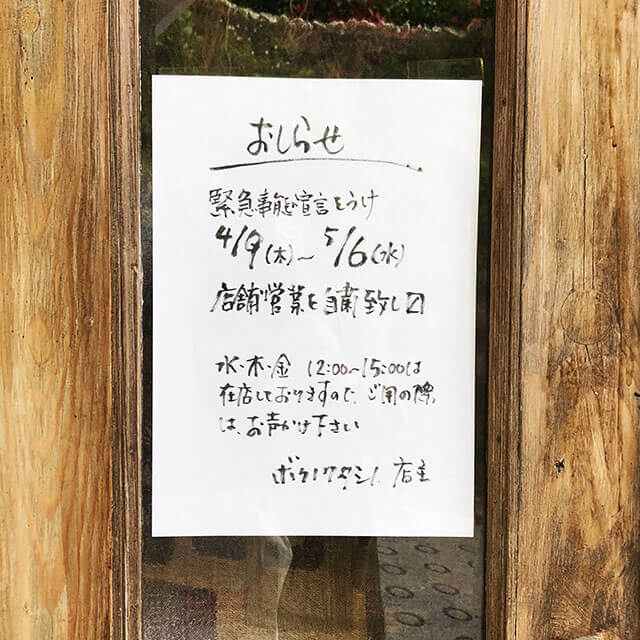 おしらせ
緊急事態宣言をうけ
4/9(木)～5/6(水)
店舗営業を自粛致し〼
水・木・金 12:00～15:00は
在店しておりますので、ご用の際
は、お声がけ下さい
ボクノワタシノ 店主